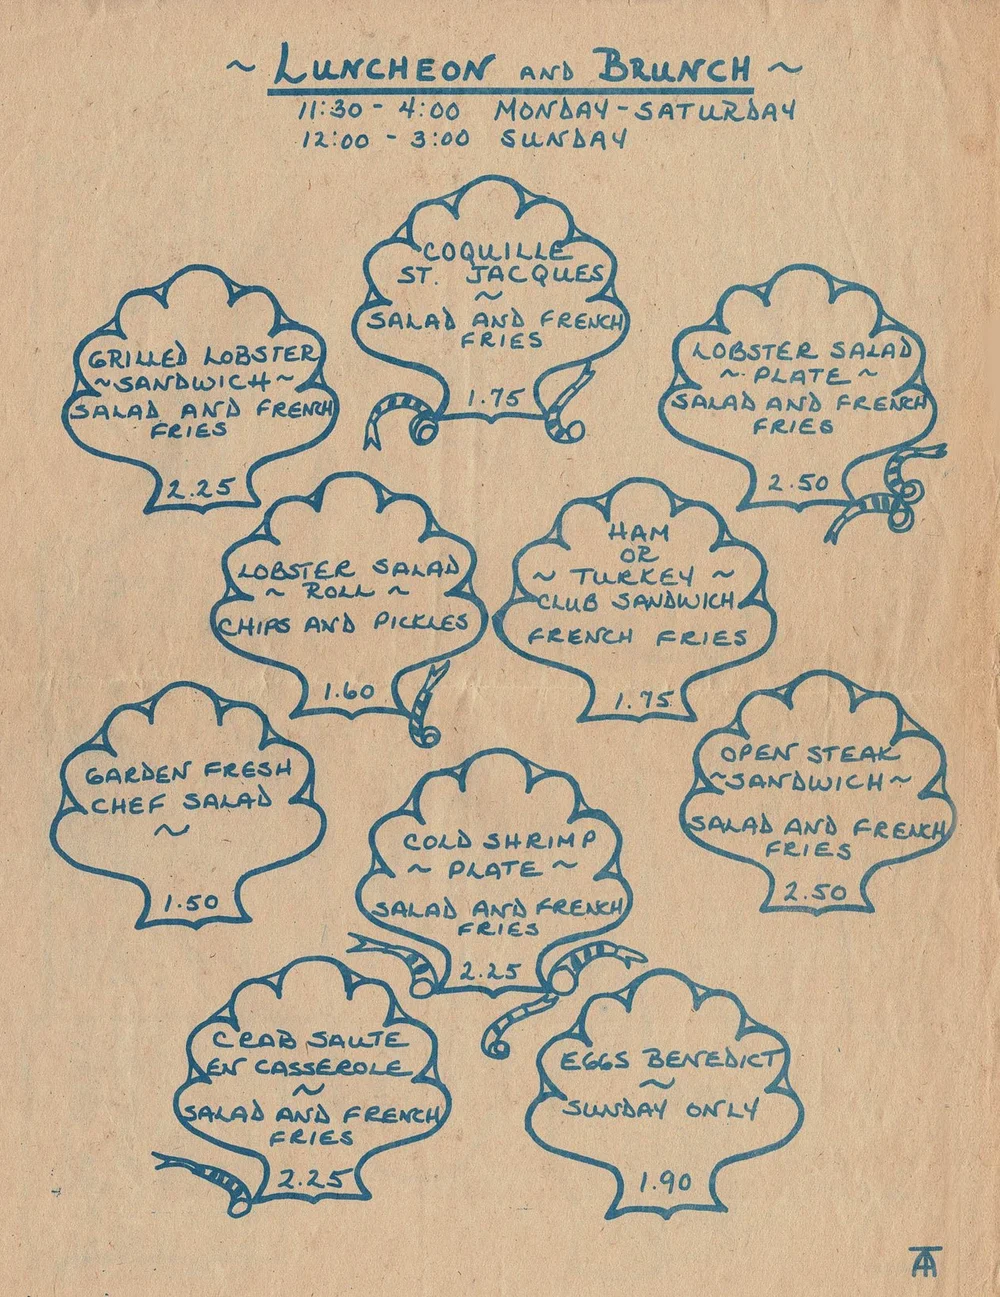 ~ LUNCHEON AND BRUNCH ~
11:30 - 4:00 MONDAY - SATURDAY
12:00 - 3:00 SUNDAY
COQUILLE
ST. JACQUES
~
SALAD AND FRENCH
FRIES
1.75
GRILLED LOBSTER
~ SANDWICH ~
SALAD AND FRENCH
FRIES
2.25
LOBSTER SALAD
~ PLATE ~
SALAD AND FRENCH
FRIES
2.50
LOBSTER SALAD
~ ROLL ~
CHIPS AND PICKLES
1.60
HAM
OR
~ TURKEY ~
CLUB SANDWICH
FRENCH FRIES
1.75
GARDEN FRESH
CHEF SALAD
~
1.50
COLD SHRIMP
~ PLATE ~
SALAD AND FRENCH
FRIES
2.25
OPEN STEAK
~ SANDWICH ~
SALAD AND FRENCH
FRIES
2.50
CRAB SAUTE
EN CASSEROLE
~
SALAD AND FRENCH
FRIES
2.25
EGGS BENEDICT
~
SUNDAY ONLY
1.90